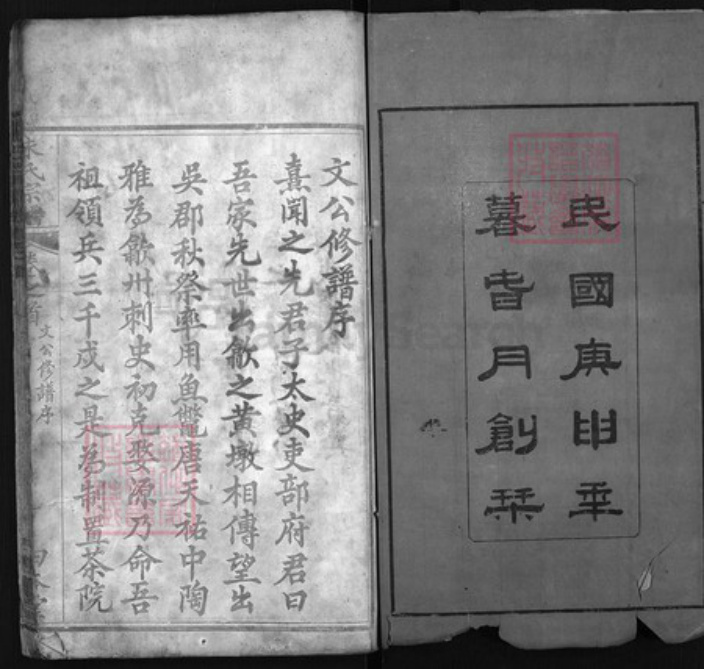 民國庚申年
暮春月創栞
文公修譜序
熹聞之先君子太史吏部府君曰
吾家先世出歙之黃墩相傳望出
吳郡秋祭率用魚鱉唐天祐中陶
雅為歙州刺史初克婺源乃命吾
祖領兵三千戍之是為制置茶院
氏宗
之首
文公修譜序